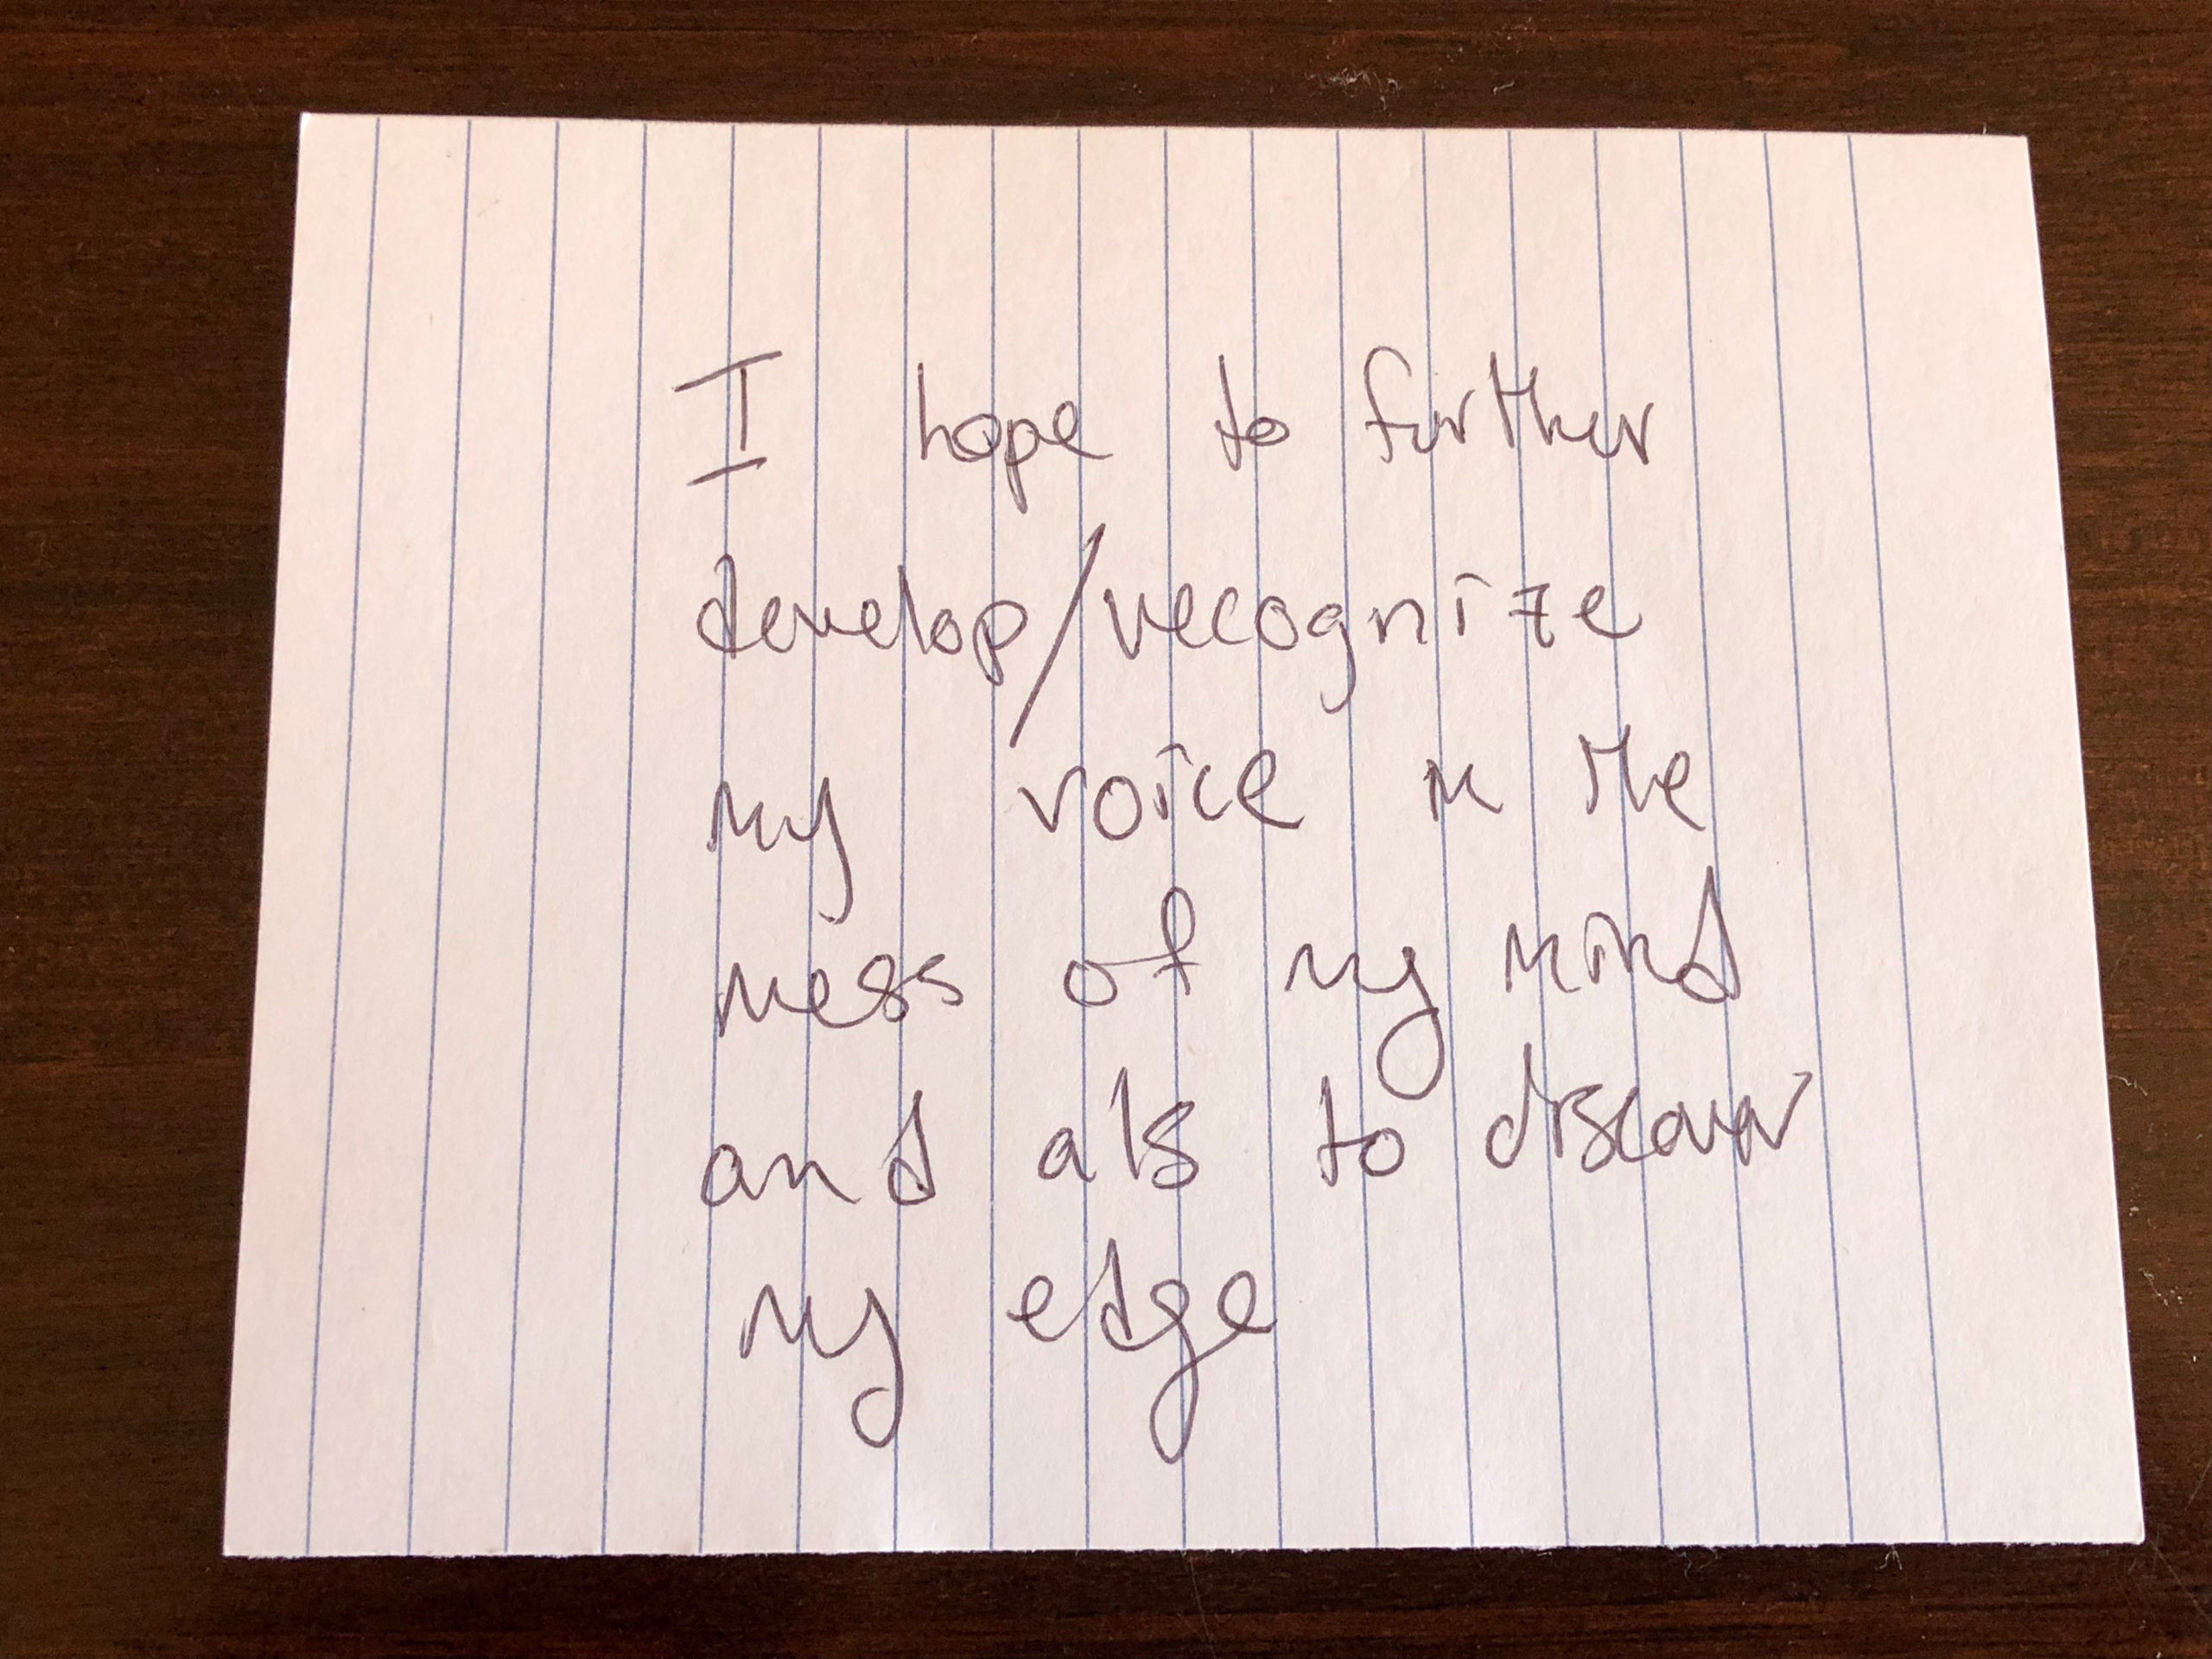 I hope to further
develop/recognize
my voice in the
mess of my mind
and als to discover
my edge